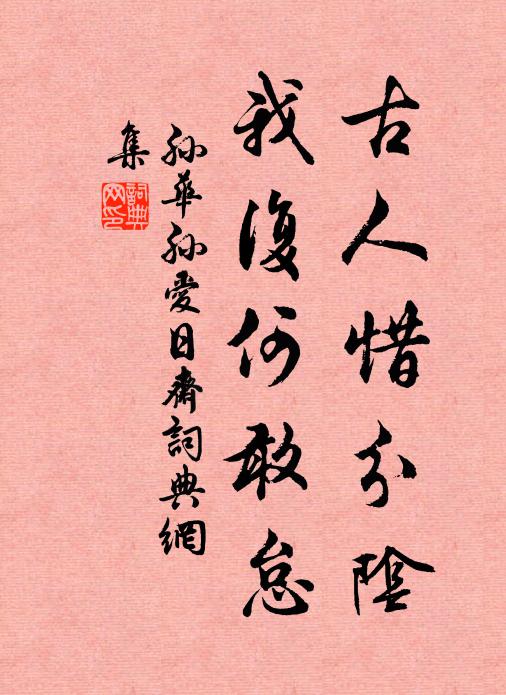 古人惜分陰
我復何敢怠
孫華孫愛日齋詞典網
集
詞典
网印